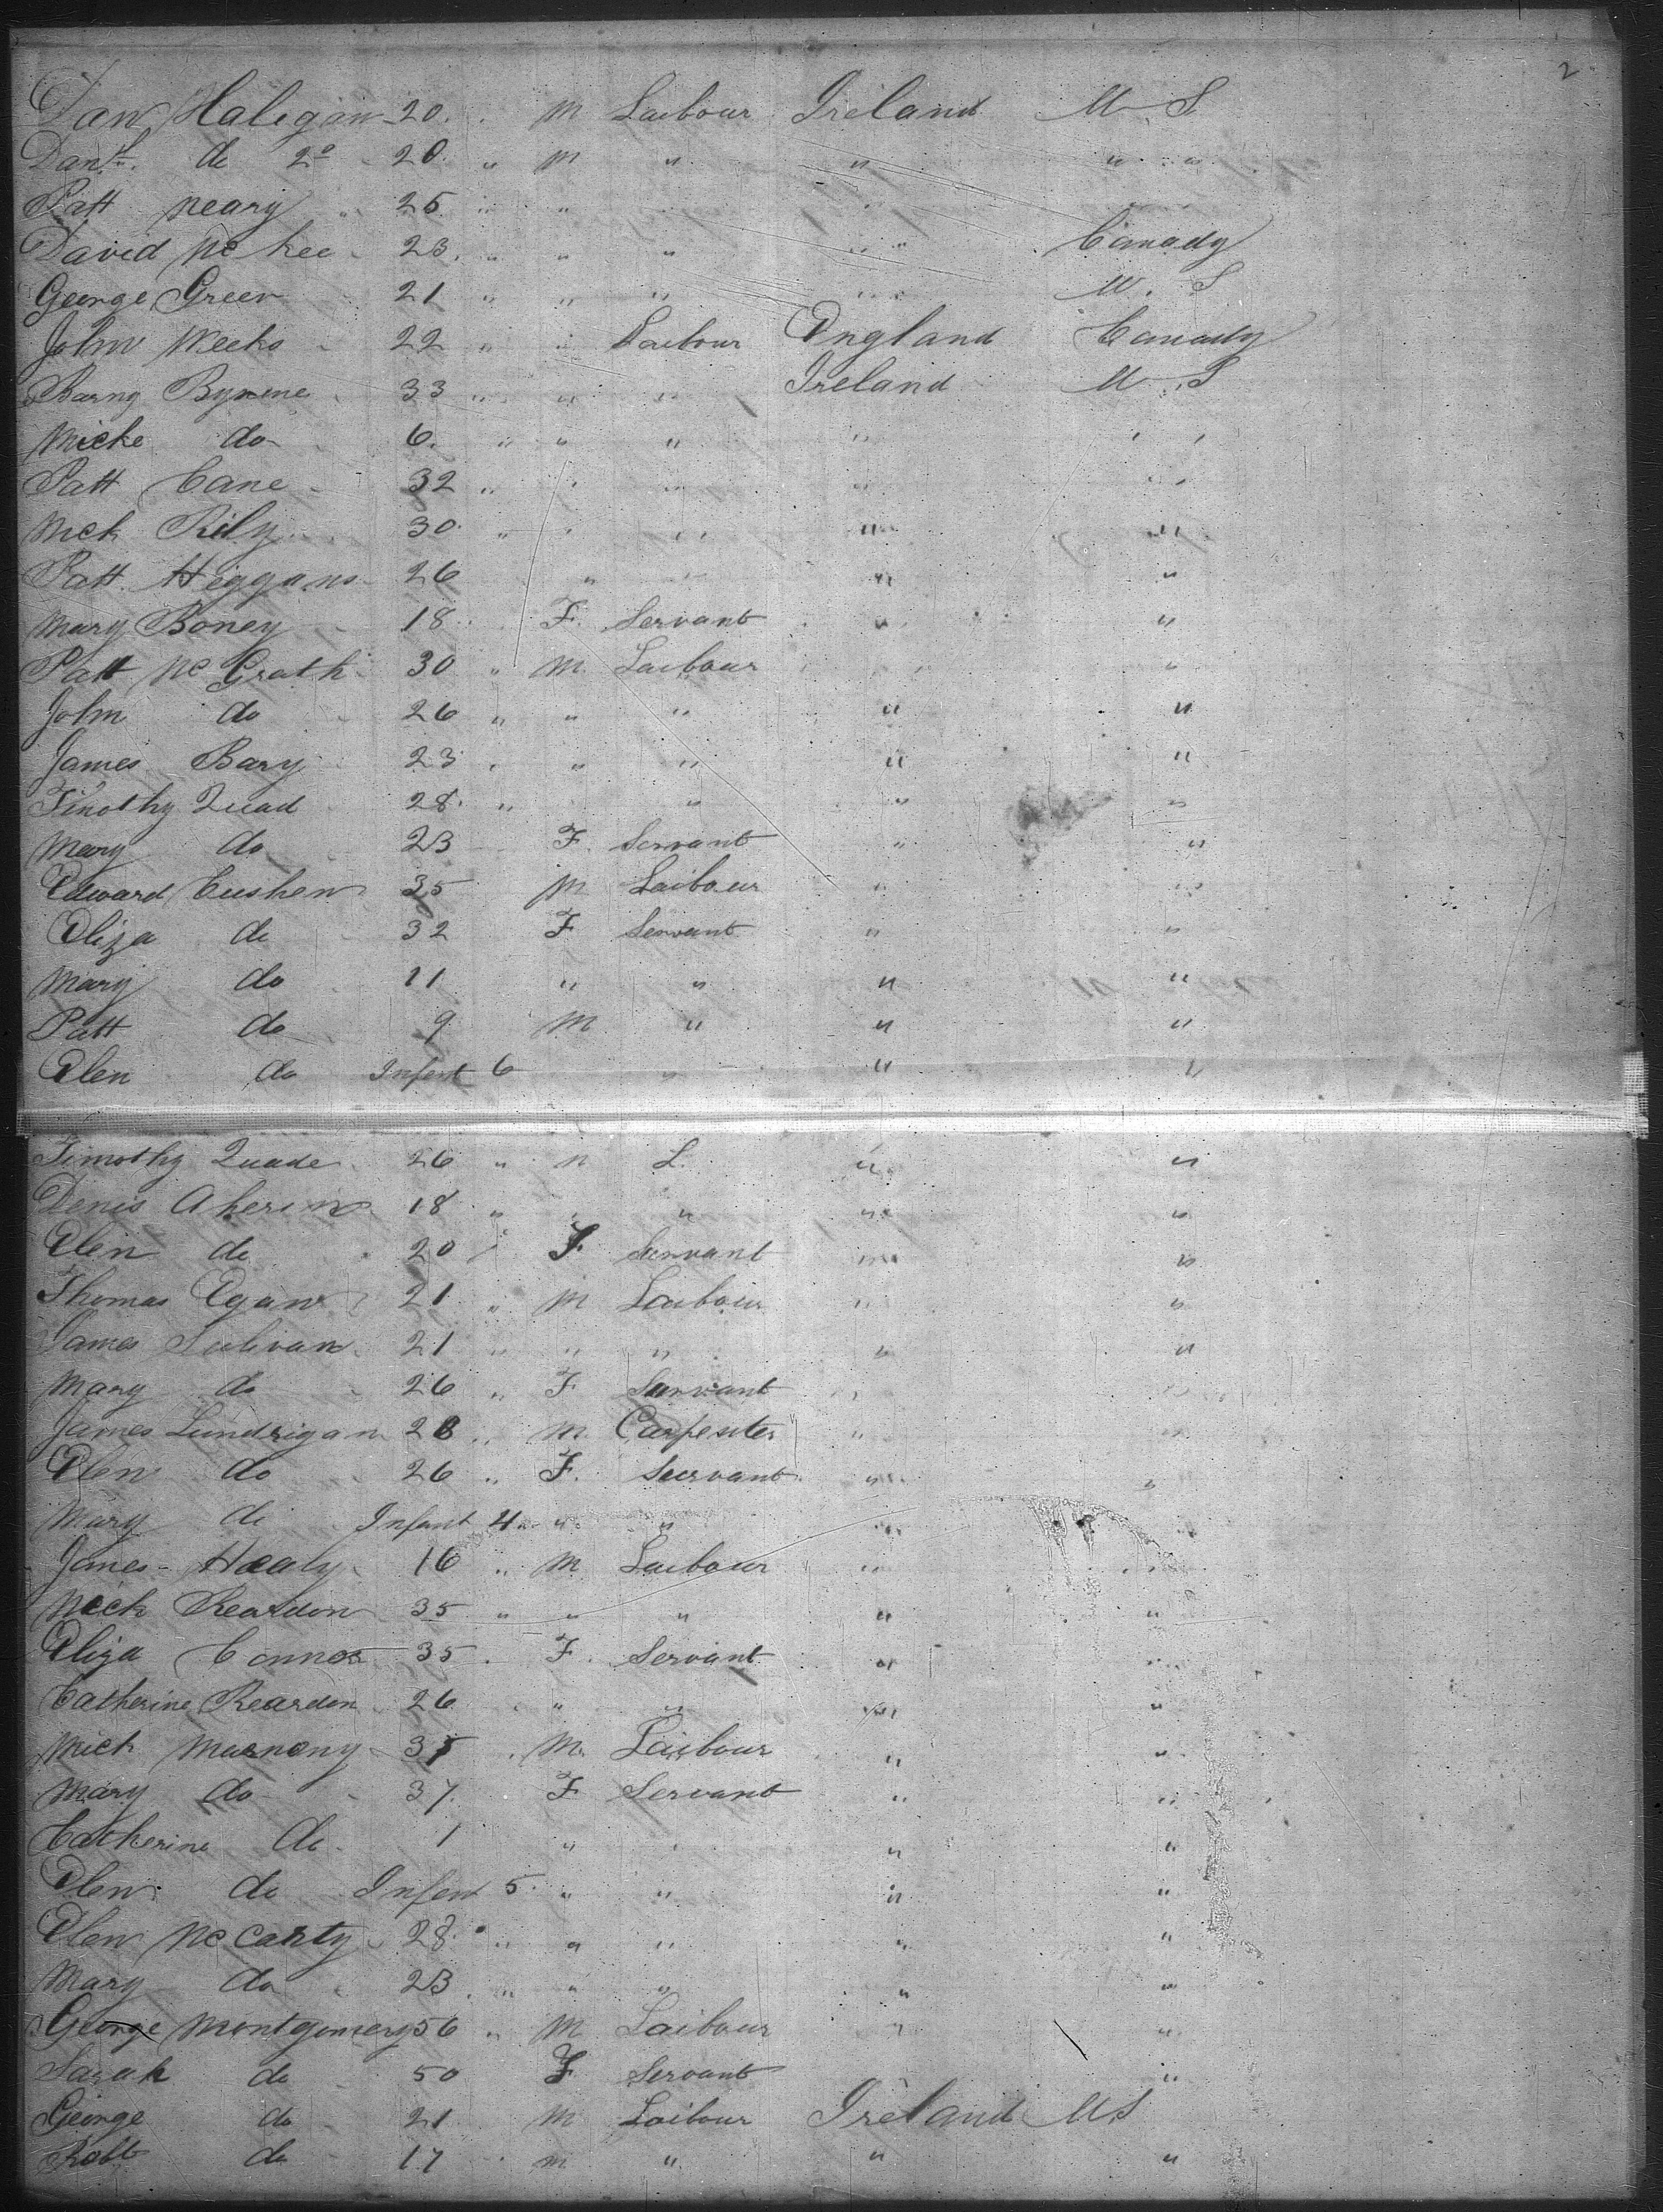 2
Dan Haligan 20 . M Laibour Ireland U S
Danl. do 2º 20 " M " " " "
Patt Neary " 25 " " "
David Mc Kee 23 " " " " Canady
George Green 21 " " " " U. S
John Weeks 22 " " Laibour England Canady
Barny Byrene 33 " " " Ireland U. S
Micke do 6 " " " " " "
Patt Cane 32 " " " " "
Mck Rily 30 " " " " "
Patt Higgans 26 " " " "
Mary Boney 18 F Servant " "
Patt Mc Grath 30 " M Laibour "
John do 26 " " " " "
James Bary 23 " " " " "
Timothy Quad 28 " " " "
Mary do 23 F Servant " "
Edward Cushen 35 M Laibour " "
Eliza do 32 F Servant " "
Mary do 11 " " " "
Patt do 9 M " " "
Elen do Infant 6 " " "
Timothy Quade 26 " M L. " "
Denis Aherin 18 " " " " "
Elen do 20 " F Survant " "
Thomas Egan 21 " M Laibour " "
James Sulivan 21 " " " " "
Mary do 26 " F Survant " "
James Lundrigan 28 " M Carpenter " "
Elen do 26 " F. Survant " "
Mary do Infant 4 " " " "
James - Healy 16 " M Laibour " "
Mick Reardon 35 " " " " "
Eliza Connor 35 . F. Servant " "
Catherine Reardon 26 " " " "
Mick Marnony 35 . M. Laibour " "
Mary do 37 F Servant " "
Catherine do 1 " " "
Elen do Infant 5 " " " "
Elen Mc Carty 28 " " " " "
Mary do 23 " " " " "
George Montgomery 56 " M Laibour " "
Sarah do 50 F Servant "
George do 21 M Laibour Ireland US
Robt do 17 M " " "